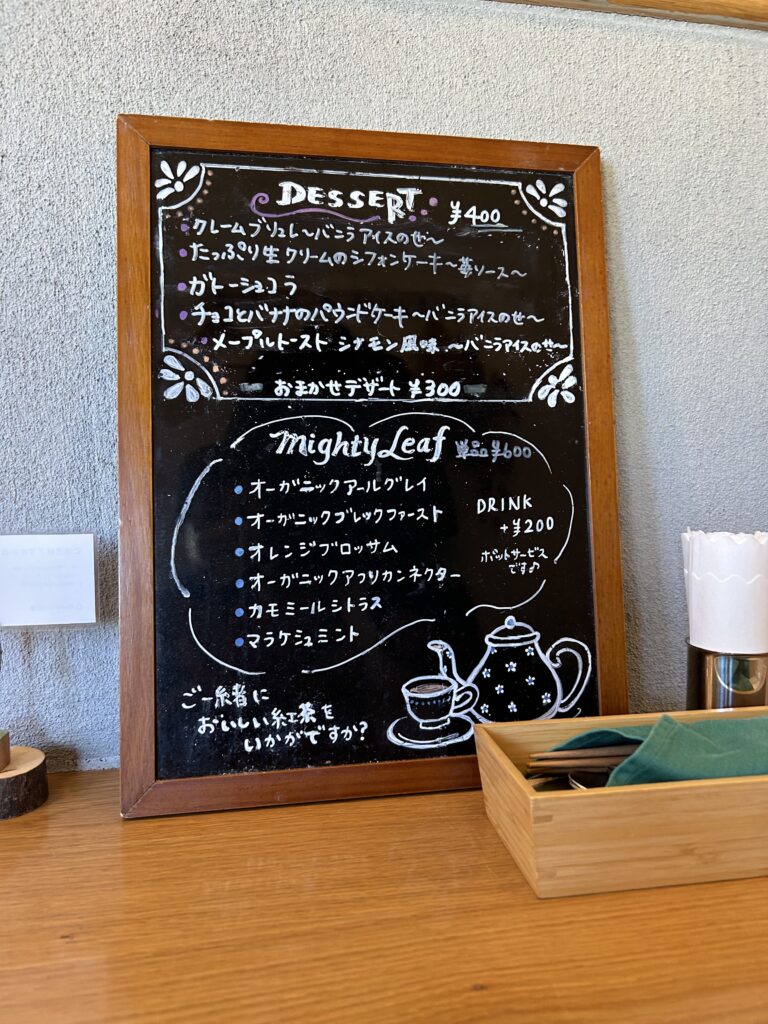 DESSERT ¥400
・クレームブリュレ～バニラアイスのせ～
・たっぷり生クリームのシフォンケーキ～苺ソース～
・ガトーショコラ
・チョコとバナナのパウンドケーキ～バニラアイスのせ～
・メープルトースト シナモン風味 ～バニラアイスのせ～
おまかせデザート ¥300
Mighty Leaf 単品¥600
・オーガニックアールグレイ
・オーガニックブレックファースト
・オレンジブロッサム
・オーガニックアフリカンネクター
・カモミールシトラス
・マラケシュミント
DRINK
+¥200
ポットサービス
です♪
ご一緒に
おいしい紅茶を
いかがですか?